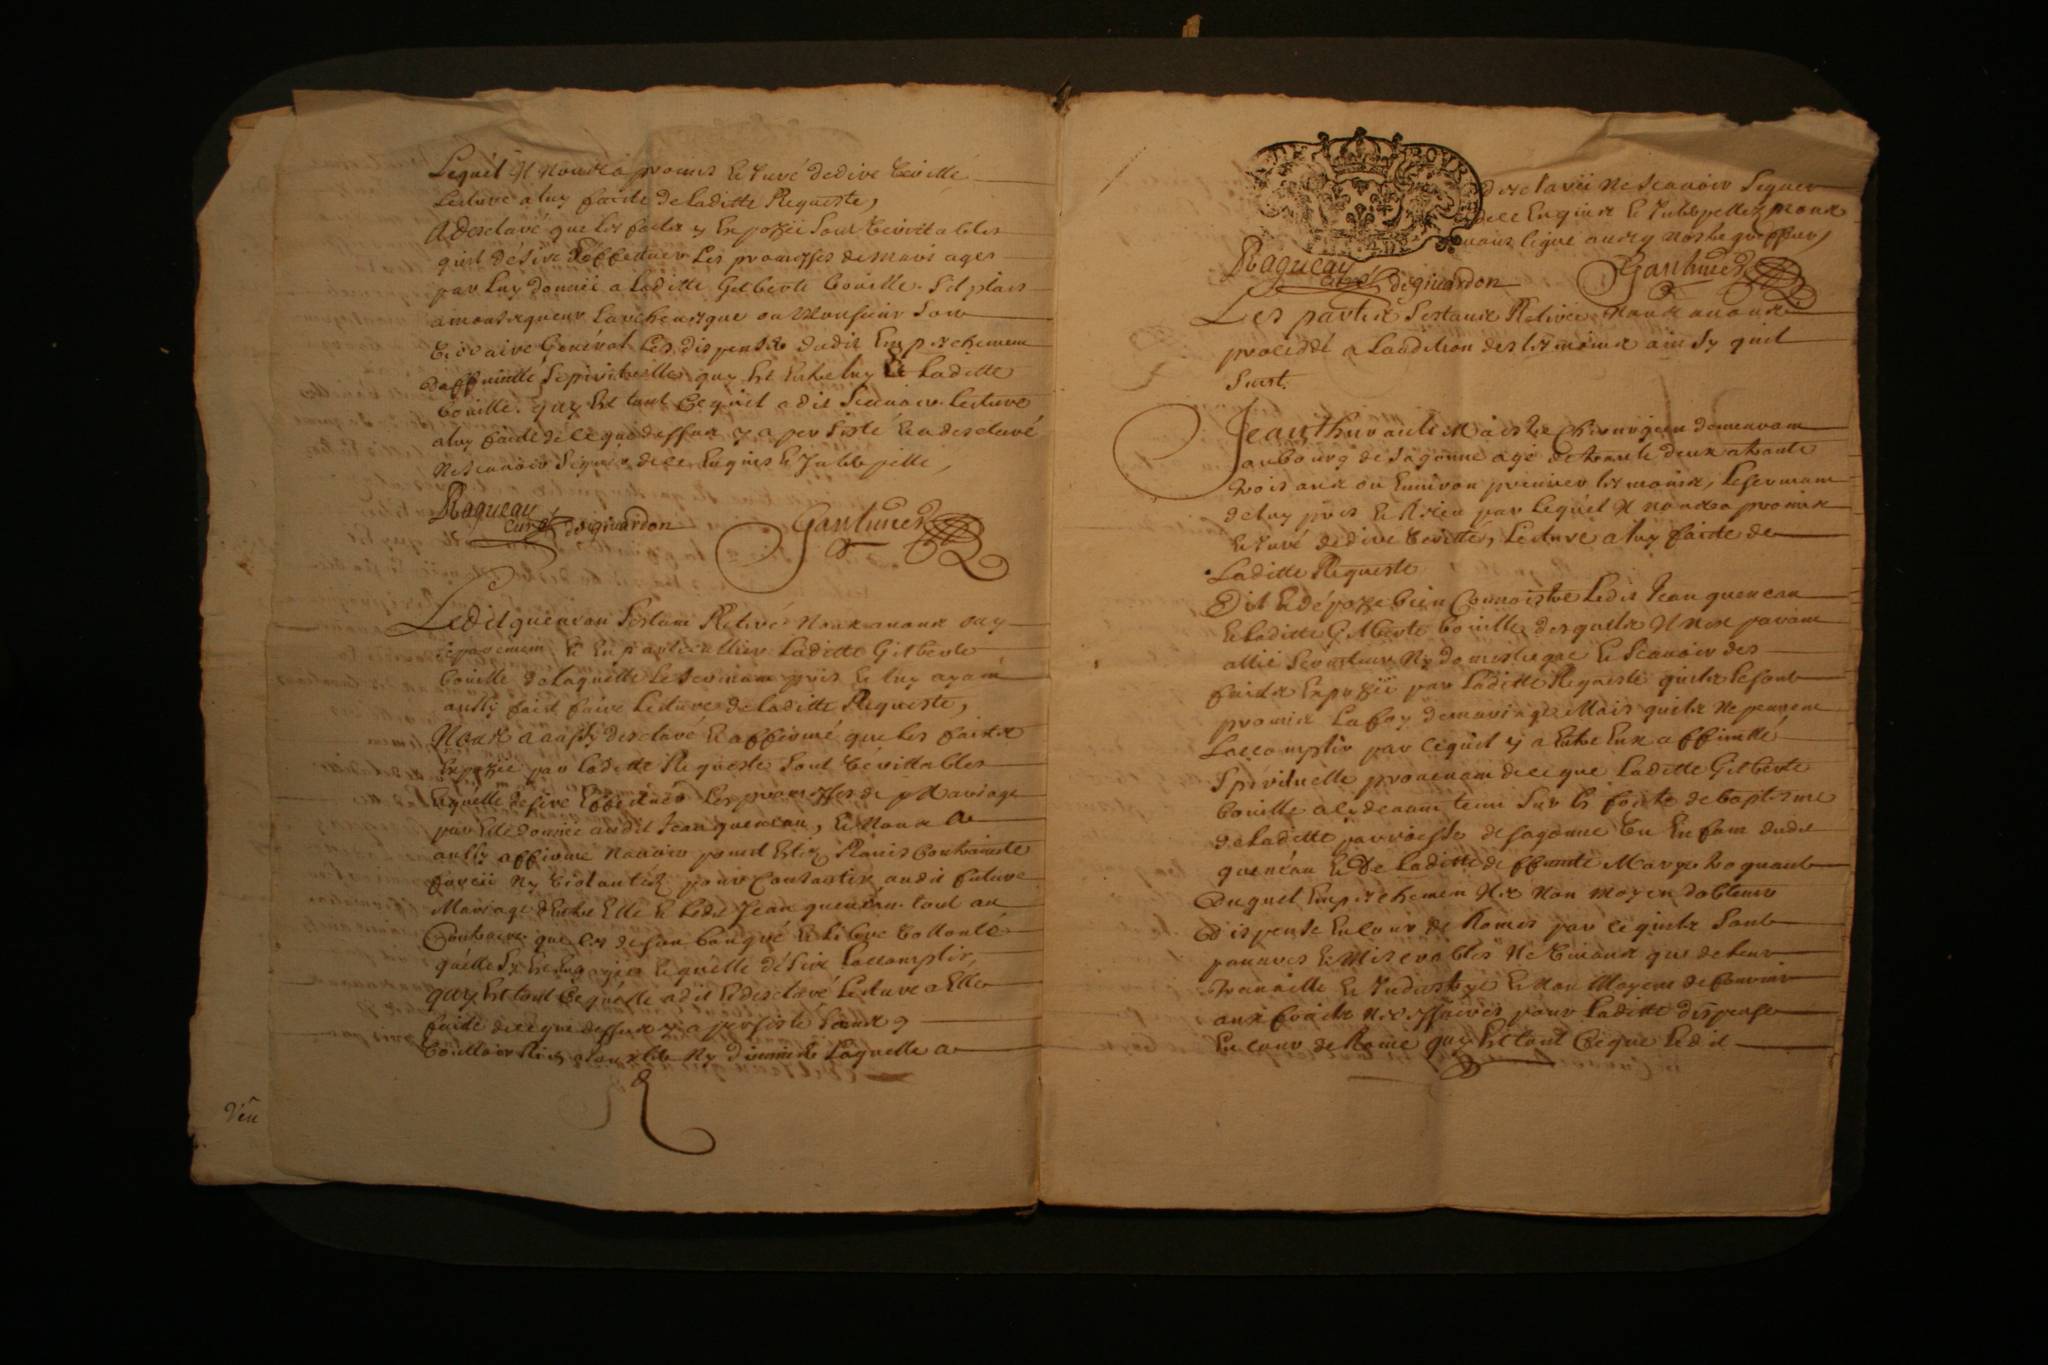 Lequel Il nous a promis et Juré de dire Veritté
Lecture a luy faicte de Laditte Requeste,
A desclaré que les faicts y Exposéz sont Veritables
quil désire Effectuer Les promesses de mariages
par Luy donnée a Laditte Gilberte bouille. Sil plais
a monseigneur Larchevesque ou Monsieur Son
Vicaire Général Les dispenser dudit Empeschement
daffinitté Spirituelle quy Est Entre luy Et Laditte
bouille. quy Est tout Ce quil a dit Scavoir. Lecture
a luy faicte de ce que dessus y a persisté Et a desclaré
ne Scavoir Signer de ce Enquis Et Interpellé,
Ragueau
curé de givardon Gautrued
Ledit queneau Sestant Retiré Nous avons ouy
separement Et En particullier Laditte Gilberte
bouille de laquelle Le serment pris Et luy ayant
aussy faict faire Lecture de Laditte Requeste,
Nous a aussy desclaré Et affirmé que les faicts
Exposéz par Laditte Requeste sont Veritables
Equelle desire Effectuer Les promesses de Mariage
par Elle donnée audit Jean queneau, Et Nous a
aussy affirmé Navoir point Estez Ravis Contrainte
forcée Ny Violantée pour Consantir audit futur
Mariage dEntre Elle Et Ledit Jean queneau. tout au
Contraire que Cest de son bon gré Et Libre Vollonté
quelle sy Est Engagée Et quelle désire Laccomplir,
quy Est tout Ce quelle a dit Et desclaré Lecture a Elle
faicte de ce que dessus y a persisté sans y
Voulloir Rien adjouster Ny diminuer Laquelle a
Veu
desclaré ne Scavoir Signer
de ce Enquise Et Interpellez nous
avons signé avecq nostre greffier,
Ragueau
curé de givardon Gautrued
Les parties Sestants Retirées Nous avons
proceddé a Laudition des tesmoins ainsy quil
Suist.
Jean thurault Maistre Chirurgien demeurant
aubourg de Sagonne agé de trente deux a trente
trois ans ou Environ premier tesmoins, Le serment
de luy pris Et Receu par Lequel Il nous a promis
Et Juré de dire Veritté, Lecture a luy faicte de
Laditte Requeste
Dit Et dépoze bien Connoistre Ledit Jean queneau
Et Laditte Gilberte bouille desquels Il nest parant
allié Serviteur Ny domestique Et Scavoir des
faicts Exposéz par Laditte Requeste quils se sont
promis La foy de mariage Mais quils Ne peuvent
Laccomplir par ce quil y a Entre Eux affinitté
Spirituelle provenant de ce que Laditte Gilberte
bouille a cy devant tenu Sur les fonts de baptesme
de Laditte parroisse de Sagonne Un Enfant dudit
queneau Et De Laditte deffunte Marye
Duquel Empeschement Ils Nont moyen dobtenir
dispense En cour de Rome par ce quils sont
pauvres Et Miserables Ne Vivants que de leur
travaille Et Industrye Et Nont Moyens de fournir
aux fraits Necessaires pour Laditte dispense
En cour de Rome quy Est tout Ce que Ledit